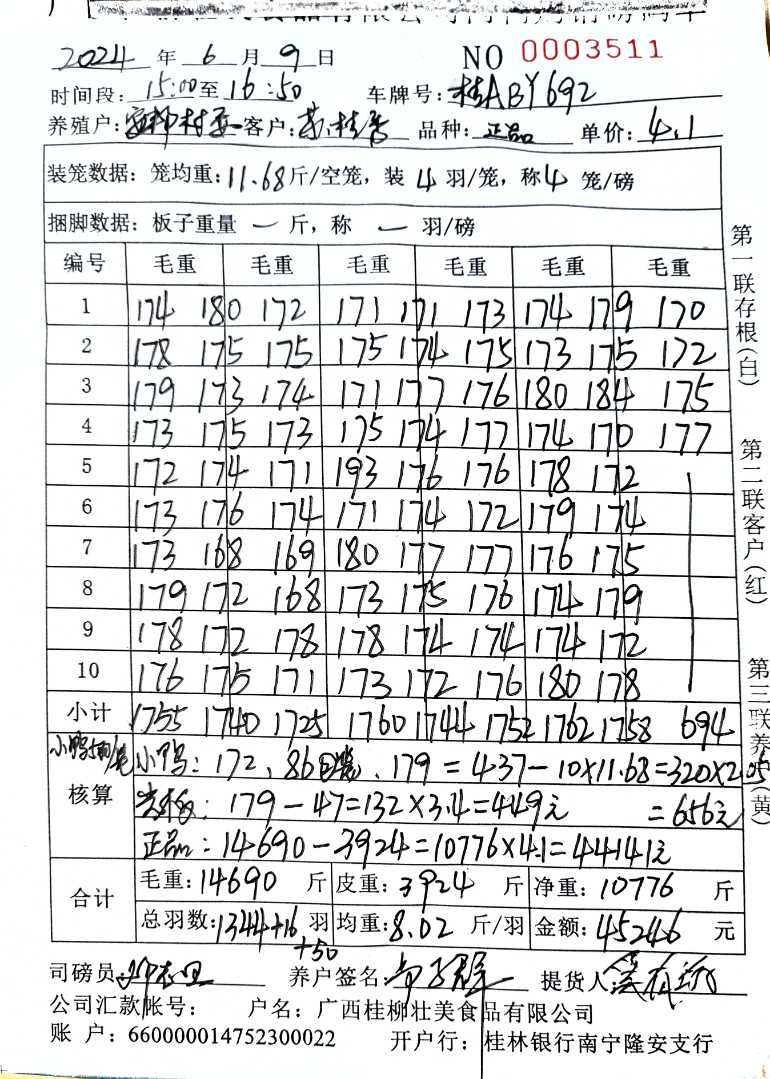 2024 年 6 月 9 日 NO 0003511
时间段: 15:00至16:50 车牌号: 桂ABY692
养殖户: 客户: 品种: 正品 单价: 4.1
装笼数据: 笼均重: 11.68斤/空笼, 装 4 羽/笼, 称4 笼/磅
捆脚数据: 板子重量 — 斤, 称 — 羽/磅
编号 毛重 毛重 毛重 毛重 毛重 毛重
1 174 180 172 171 171 173 174 179 170
2 178 175 175 175 174 175 173 175 172
3 179 173 174 171 177 176 180 184 175
4 173 175 173 175 174 177 174 170 177
5 172 174 171 193 176 176 178 172
6 173 176 174 171 174 172 179 174
7 173 168 169 180 177 177 176 175
8 179 172 168 173 175 176 174 179
9 178 172 178 178 174 174 174 172
10 176 175 171 173 172 176 180 178
小计 1755 1740 1725 1760 1744 1752 1762 1758 694
核算 小鸭: 172、86、179=437-10×11.68=320×2.05
179-47=132×3.4=449元 =656元
正品: 14690-3924=10776×4.1=44141元
合计 毛重: 14690 斤 皮重: 3924 斤 净重: 10776 斤
总羽数: 1344+16 羽 均重: 8.02 斤/羽 金额: 45246 元
+50
司磅员: 养户签名 提货人
公司汇款帐号: 户名: 广西桂柳壮美食品有限公司
账 户: 660000014752300022 开户行: 桂林银行南宁隆安支行
第一联存根(白) 第二联客户(红) 第三联养(黄)